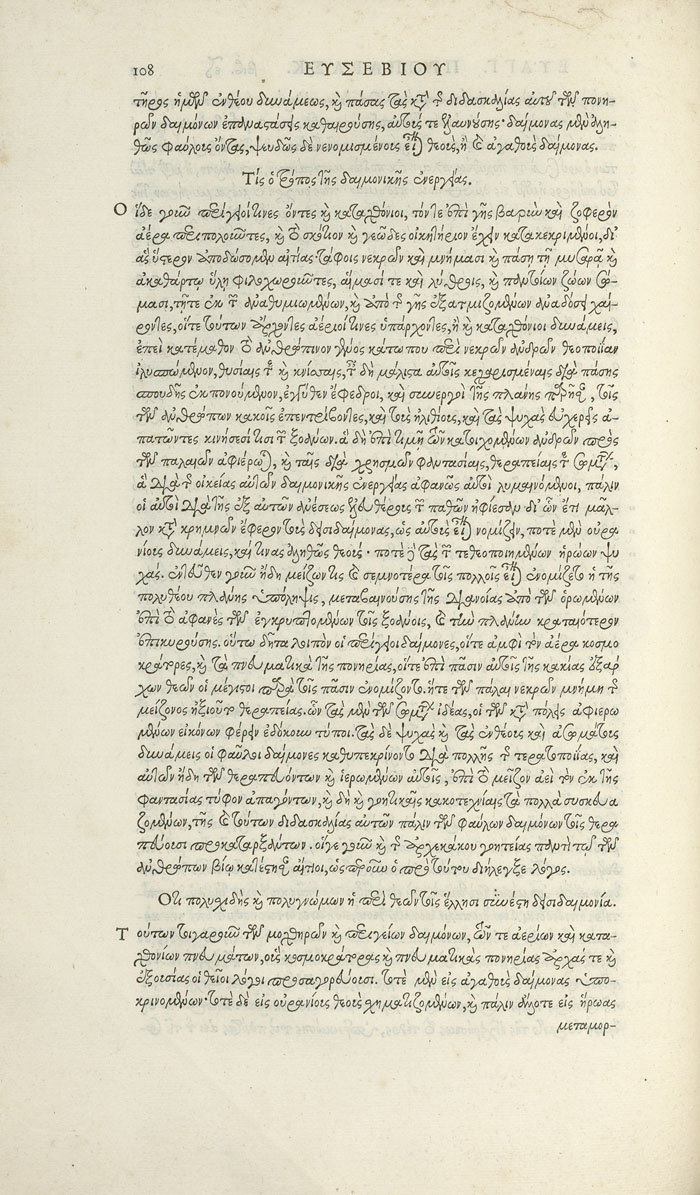 108 ΕΥΣΕΒΙΟΥ
τῆρος ἡμῶν ἐνθέου δυνάμεως, καὶ πάσας τὰς κατὰ τὴν διδασκαλίας αὐτοῦ τῶν πονη-
ρῶν δαιμόνων ἐπαναστάσεις καθαιρούσης, αὐτούς τε ἐλαυνούσης· δαίμονας μὲν ἀλη-
θῶς φαύλους ὄντας, ψευδῶς δὲ νενομισμένους εἶναι θεοὺς, ἢ καὶ ἀγαθοὺς δαίμονας.
Τίς ὁ τρόπος τῆς δαιμονικῆς ἐνεργείας.
Οἵδε γοῦν περίγειοί τινες ὄντες καὶ καταχθόνιοι, τόν τε ἐπὶ γῆς βαρὺν καὶ ζοφερὸν
ἀέρα περιπολοῦντες, καὶ τὸ σκότιον καὶ γεῶδες οἰκητήριον ἔχειν κατακεκριμένοι, δι'
ἃς ὕστερον ἀποδώσομεν αἰτίας· τάφοις νεκρῶν καὶ μνήμασι καὶ πάσῃ τῇ μυσαρᾷ καὶ
ἀκαθάρτῳ ὕλῃ φιλοχωροῦντες, αἵμασί τε καὶ λύθροις, καὶ παντοίων ζώων σώ-
μασι, τῇ τε ἐκ τῶν ἀναθυμιωμένων, καὶ ἀπὸ τῆς γῆς ἐξατμιζομένων ἀναδόσει χαί-
ροντες, οἵτε τούτων ἄρχοντες ἀέριοί τινες ὑπάρχοντες, ἢ καὶ καταχθόνιοι δυνάμεις,
ἐπεὶ κατέμαθον τὸ ἀνθρώπινον γένος κάτω που περὶ νεκρῶν ἀνδρῶν θεοποιίαν
ἰλυσπώμενον, θυσίαις τε καὶ κνίσσαις, ταῖς δὴ μάλιστα αὐτοῖς κεχαρισμέναις διὰ πάσης
σπουδῆς ἐκπονούμενον, ἐγγύθεν ἔφεδροι, καὶ συνεργοὶ τῆς πλάνης παρῆσαν, τοῖς
τῶν ἀνθρώπων κακοῖς ἐπεντρίβοντες, καὶ τοὺς ἠλιθίους, καὶ τὰς ψυχὰς εὐχερεῖς ἀ-
πατῶντες κινήσεσί τισι τῶν ξοάνων. ἃ δὴ ἐπὶ τιμῇ τῶν κατοιχομένων ἀνδρῶν πρὸς
τῶν παλαιῶν ἀφιέρωτο, καὶ ταῖς διὰ χρησμῶν φαντασίαις, θεραπείαις τε σωμάτων,
ἃ διὰ τῆς οἰκείας αὐτῶν δαιμονικῆς ἐνεργείας ἀφανῶς αὐτοὶ λυμαινόμενοι, πάλιν
οἱ αὐτοὶ διὰ τῆς ἐξ αὐτῶν ἀνέσεως ἐλευθέρους τῶν παθῶν ἠφίεσαν· δι' ὧν ἔτι μᾶλ-
λον κατὰ κρημνῶν ἔφερον τοὺς δεισιδαίμονας, ὡς αὐτοὺς εἶναι νομίζειν, ποτὲ μὲν οὐρα
νίους δυνάμεις, καί τινας ἀληθῶς θεούς· ποτὲ δὲ τὰς τῶν τεθεοποιημένων ἡρώων ψυ
χάς. ἐντεῦθεν γοῦν ἤδη μείζων τις καὶ σεμνοτέρα τοῖς πολλοῖς εἶναι ἐνομίζετο ἡ τῆς
πολυθέου πλάνης ὑπόληψις, μεταβαινούσης τῆς διανοίας ἀπὸ τῶν ὁρωμένων
ἐπὶ τὸ ἀφανὲς τῶν ἐγκρυπτομένων τοῖς ξοάνοις, καὶ τὴν πλάνην κραταιότερον
ἐπικυρούσης. οὕτω δῆτα λοιπὸν οἱ περίγειοι δαίμονες, οἵτε ἀμφὶ τὸν ἀέρα κοσμο
κράτορες, καὶ τὰ πνευματικὰ τῆς πονηρίας, οἵτε ἐπὶ πᾶσιν αὐτοῖς τῆς κακίας ἐξάρ
χων θεῶν οἱ μέγιστοι παρὰ τοῖς πᾶσιν ἐνομίζοντο. ἥτε τῶν πάλαι νεκρῶν μνήμη τῆς
μείζονος ἠξιοῦτο θεραπείας. ὧν τὰς μὲν τῶν σωμάτων ἰδέας, οἱ τῶν κατὰ πόλεις ἀφιερω
μένων εἰκόνων φέρειν ἐδόκουν τύποι. τὰς δὲ ψυχὰς καὶ τὰς ἐνθέους καὶ ἀσωμάτους
δυνάμεις οἱ φαῦλοι δαίμονες καθυπεκρίνοντο διὰ πολλῆς τῆς τερατοποιίας, καὶ
αὐτῶν ἤδη τῶν θεραπευόντων καὶ ἱερωμένων αὐτοῖς, ἐπὶ τὸ μεῖζον ἀεὶ τὸν ἐκ τῆς
φαντασίας τύφον ἀπαγόντων, καὶ δὴ καὶ γοητικαῖς κακοτεχνίαις τὰ πολλὰ συσκευα
ζομένων, τῆς καὶ τούτων διδασκαλίας αὐτῶν πάλιν τῶν φαύλων δαιμόνων τοῖς θερα
πεύουσι προκαταρξάντων. οἵγε γοῦν καὶ τῆς ἀρχεκάκου γοητείας παντὶ τῷ τῶν
ἀνθρώπων βίῳ κατέστησαν αἴτιοι, ὡς πρώην ὁ πρὸ τούτου διήλεγξε λόγος.
Ὅτι πολυειδὴς καὶ πολυγνώμων ἡ περὶ θεῶν τοῖς ἕλλησι συνέστη δεισιδαιμονία.
Τούτων τοιγαροῦν τῶν μοχθηρῶν καὶ περιγείων δαιμόνων, τῶν τε ἀερίων καὶ κατα-
χθονίων πνευμάτων, οὓς κοσμοκράτορας καὶ πνευματικὰς πονηρίας ἀρχάς τε καὶ
ἐξουσίας οἱ θεῖοι λόγοι προσαγορεύουσι. τοτὲ μὲν εἰς ἀγαθοὺς δαίμονας ὑπο-
κρινομένων· τοτὲ δὲ εἰς οὐρανίους θεοὺς σχηματιζομένων, καὶ πάλιν ἄλλοτε εἰς ἥρωας
μεταμορ-